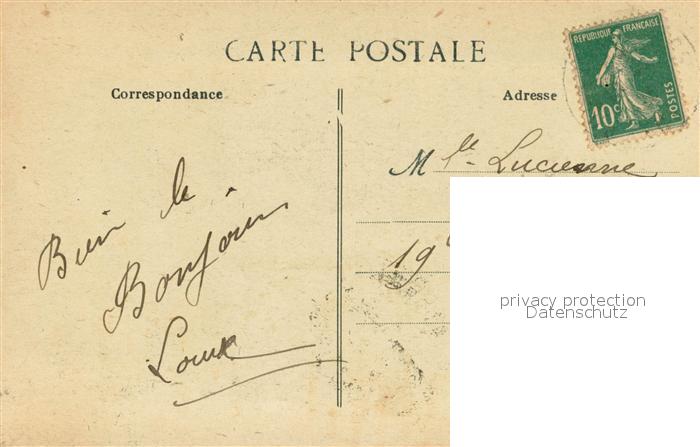 CARTE POSTALE
RÉPUBLIQUE FRANÇAISE
10c
POSTES
Correspondance
Adresse
Bien le
Bonjour
Mlle Lucienne
19
privacy protection
Datenschutz